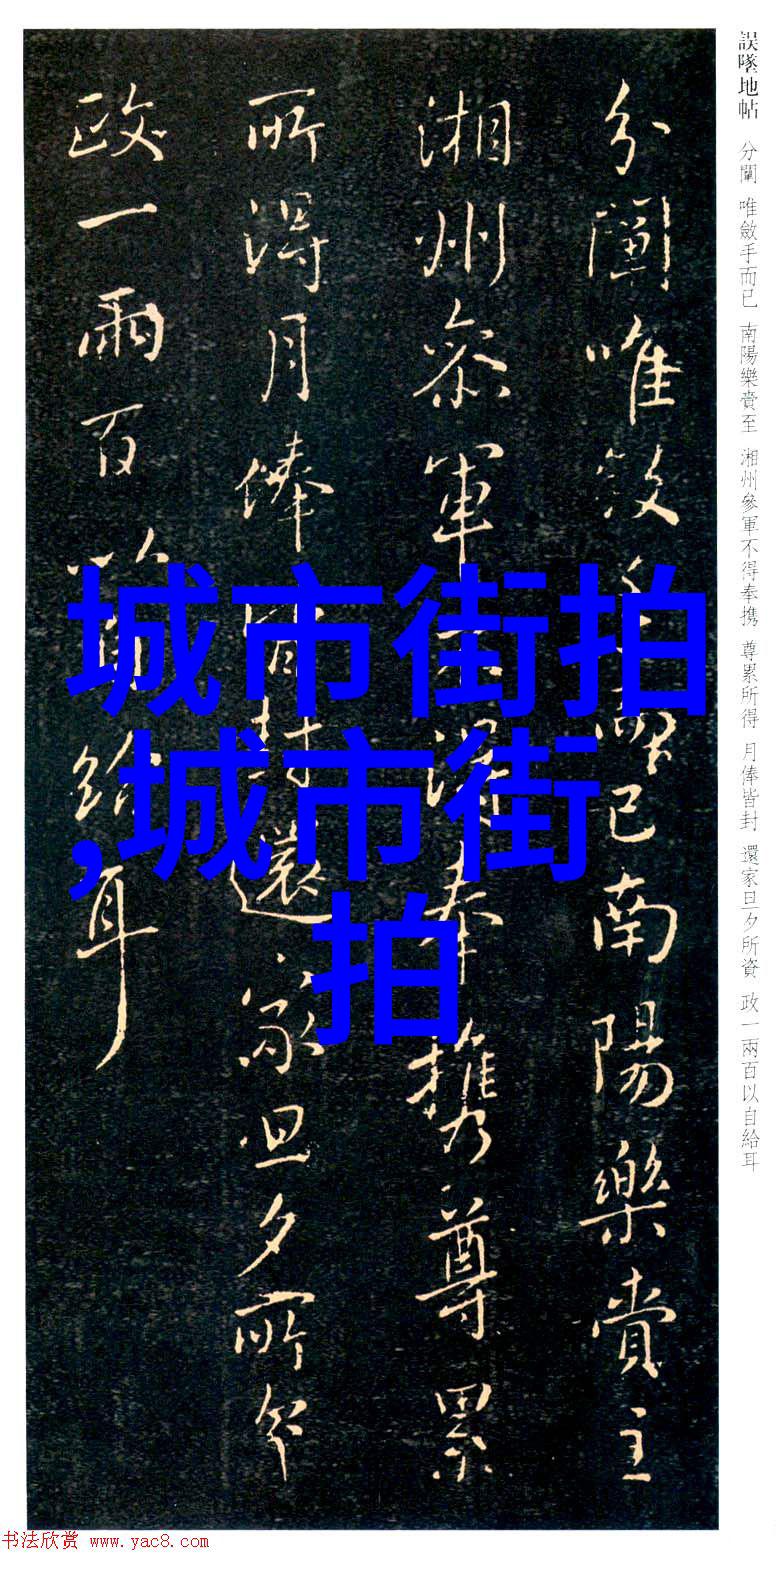 誤墜地帖 分闡 唯斂手而已 南陽樂賷至 湘州參軍不得奉携 尊累所得 月俸皆封 還家旦夕所資 政一兩百以自給耳
分闡唯斂手而已南陽樂賷至
湘州參軍不得奉携尊累
所得月俸皆封還家旦夕所資
政一兩百以自給耳
城市街拍
,城市街
拍
书法欣赏 www.yac8.com